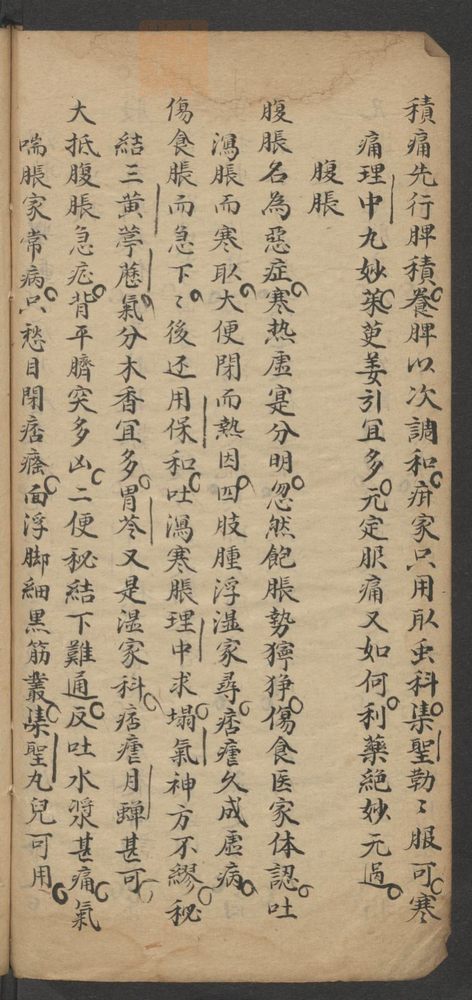 積痛先行脾積養脾以次調和疳家只用取虫科集聖勒〻服可寒
痛理中九妙茱萸姜引宜多元定服痛又如何利藥絕妙元過
腹脹
腹脹名為惡症寒热虛寔分明忽然飽脹勢獰猙傷食医家体認吐
瀉脹而寒取大便閉而熱因四肢腫浮湿家尋痞瘧久成虛病
傷食脹而急下〻後还用保和吐瀉寒脹理中求塌氣神方不繆秘
結三黄葶藶氣分木香宜多胃苓又是湿家科痞瘧月蟬甚可
大抵腹脹急症背平臍突多凶二便秘結下難通反吐水漿甚痛氣
喘脹家常病只愁目閉痞癢面浮脚細黑筋叢集聖丸兒可用